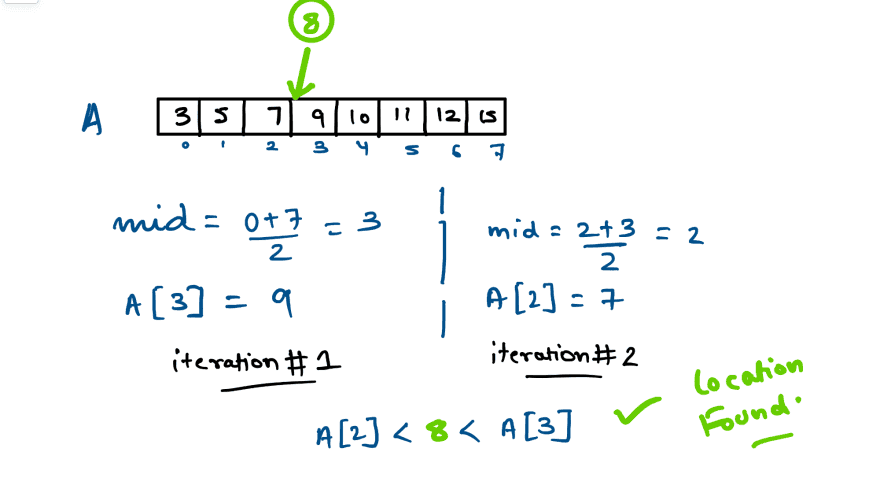 8
A 3 5 7 9 10 11 12 15
0 1 2 3 4 5 6 7
mid = 0+7/2 = 3
A[3] = 9
iteration #1
mid = 2+3/2 = 2
A[2] = 7
iteration #2
A[2] < 8 < A[3] ✓
Location
Found.